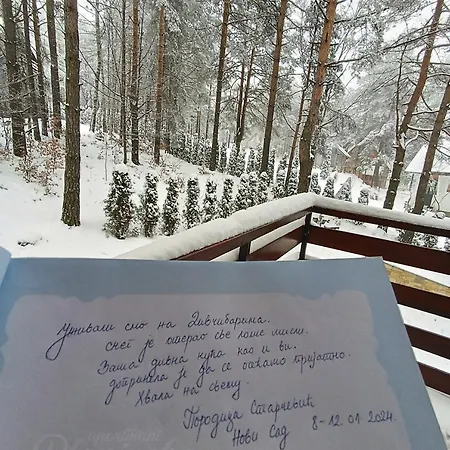 Уживали смо на Дивчибарима.
Снег је отерао све лоше мисли.
Ваша дивна кућа као и ви.
допринела је да се осећамо пријатно.
Хвала на свему.
Породица Старчевић
Нови Сад
8-12.01.2024.